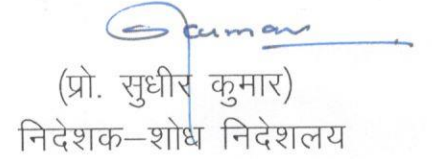 (प्रो. सुधीर कुमार)
निदेशक–शोध निदेशलय